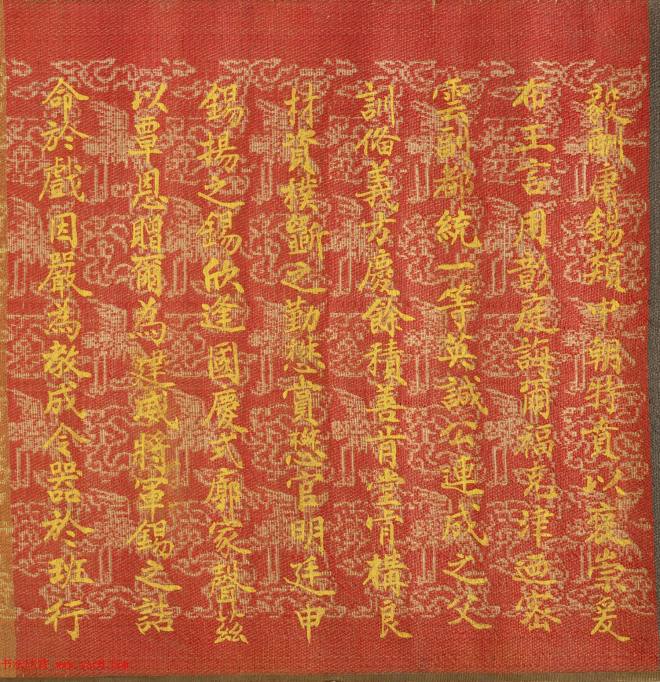 毅酬庸錫類中朝特賁以褒崇爰
布王言用彰庭誨爾福克津迺密
雲副都統一等英誠公連成之父
訓備義方慶餘積善肯堂肯構良
材資樸斵之勤懋賞懋官明廷申
錫揚之錫欣逢國慶式廓家聲茲
以覃恩贈爾為建威將軍錫之誥
命於戲因嚴為敎成令器於班行